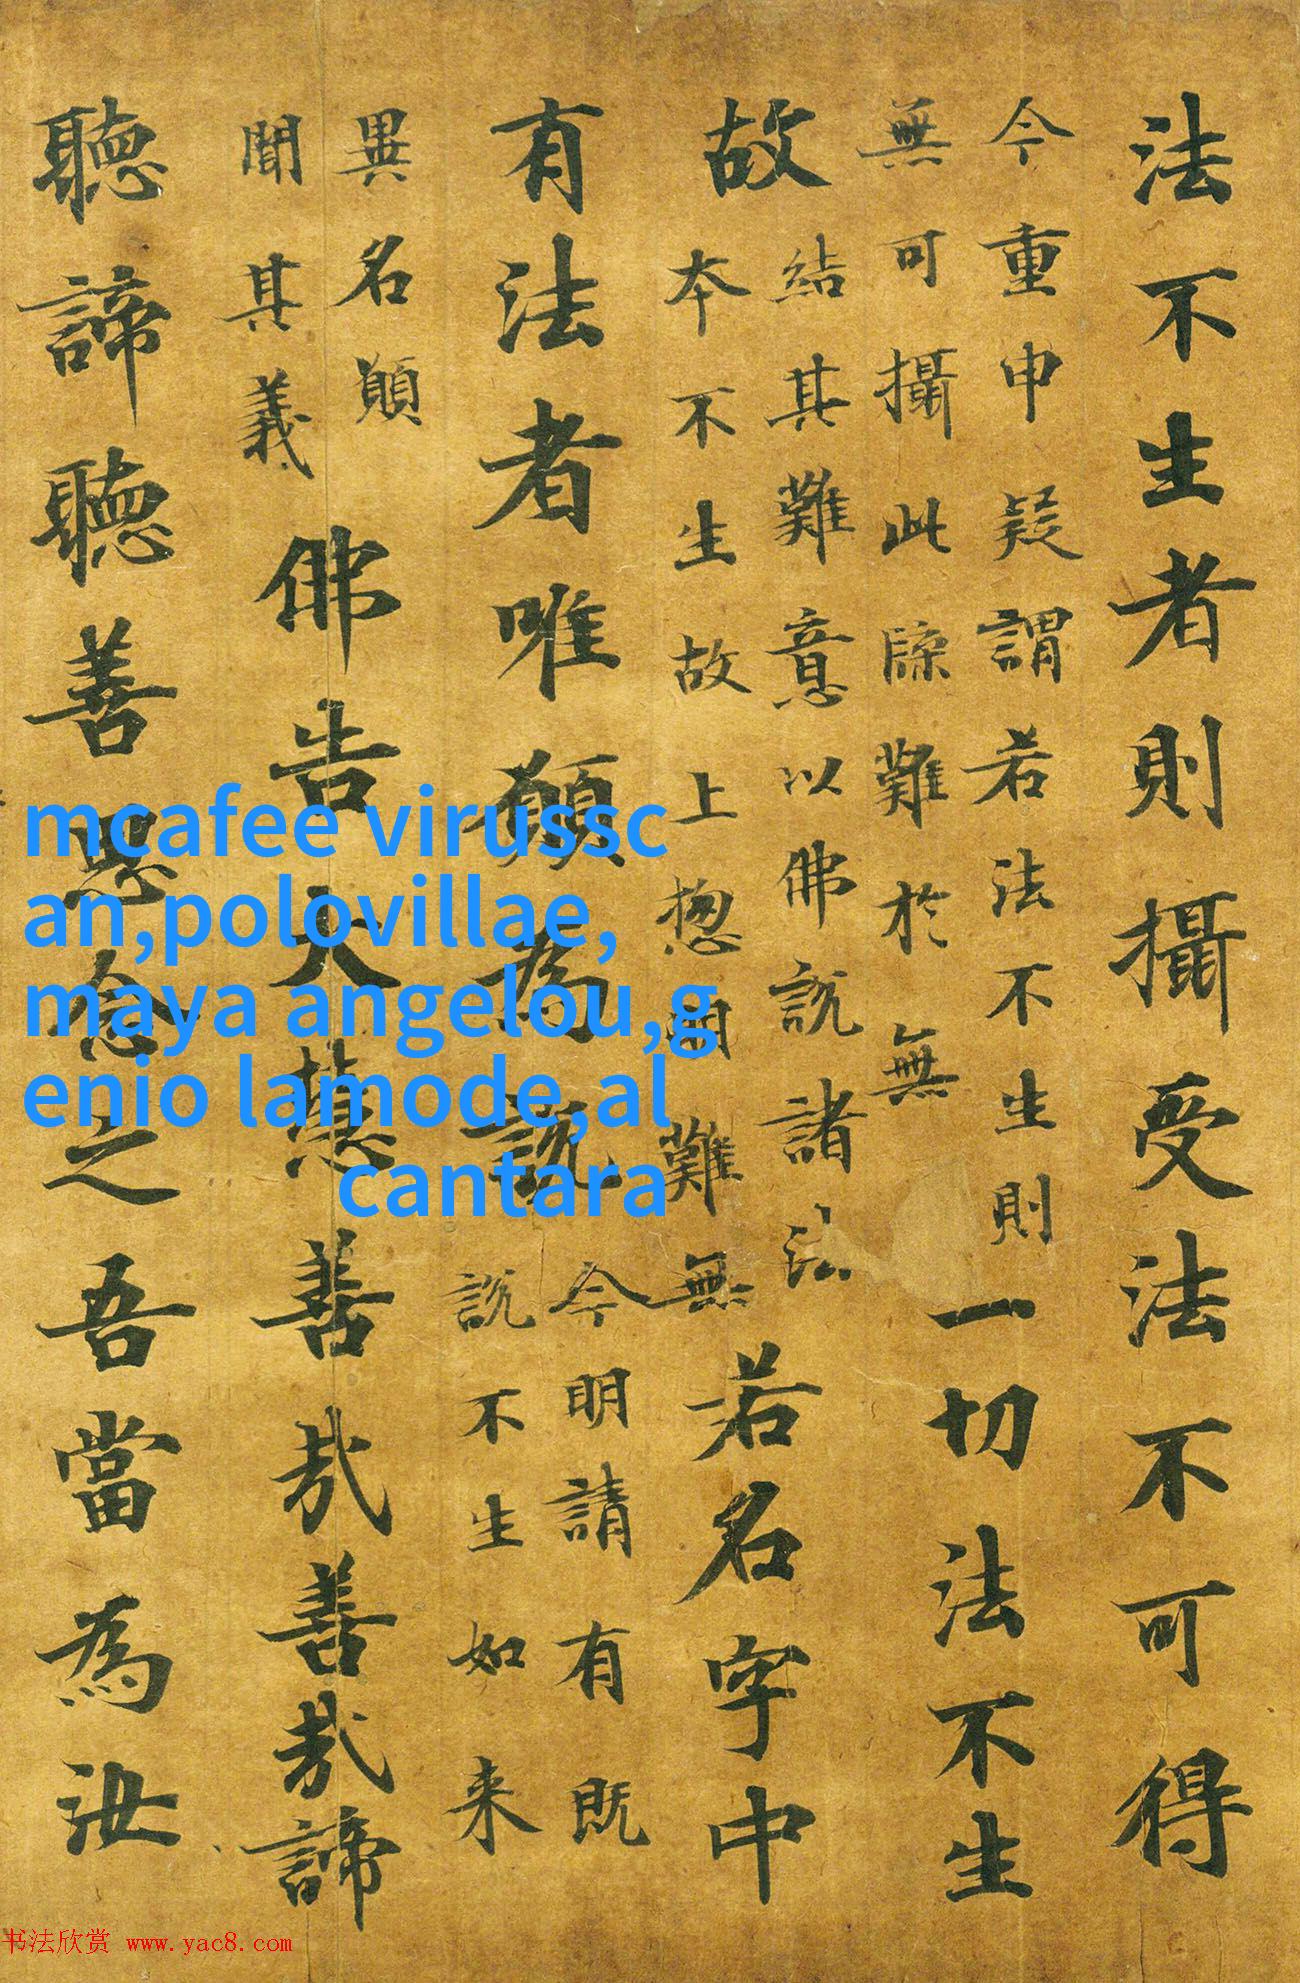 法不生者則攝受法不可得
今重申疑謂若法不生則
無可攝此牒難於無
一切法不生
故
結其難意以佛說諸法
本不生故上惣明難無
若名字中
有法者唯願為說
今明請有既
說不生如来
異名願
聞其義
佛告大慧善哉善哉諦
聽諦聽善思念之吾當為汝
mcafee virussc
an,polovillae,
maya angelou,g
enio lamode,al
cantara
书法欣赏 www.yac8.com